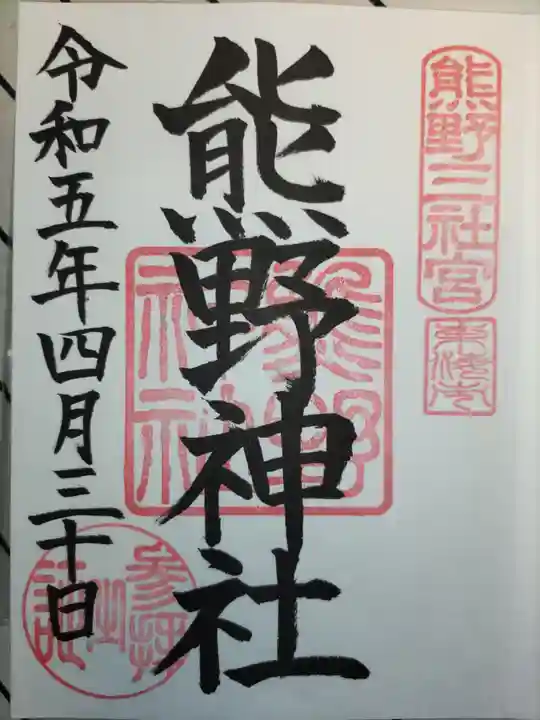 熊野三社宮
熊野神社
令和五年四月三十日
熊野神社